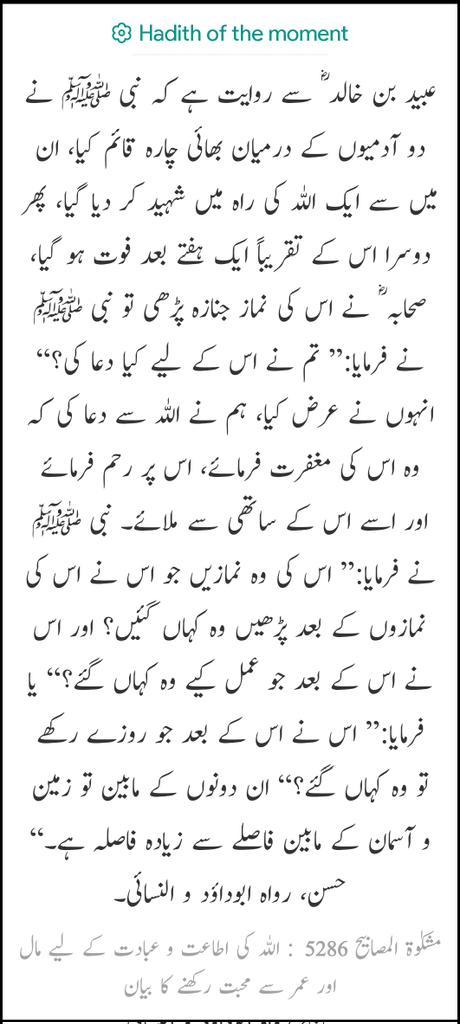 Hadith of the moment
عبید بن خالد ؓ سے روایت ہے کہ نبی ﷺ نے
دو آدمیوں کے درمیان بھائی چارہ قائم کیا، ان
میں سے ایک اللہ کی راہ میں شہید کر دیا گیا، پھر
دوسرا اس کے تقریباً ایک ہفتے بعد فوت ہو گیا،
صحابہ ؓ نے اس کی نماز جنازہ پڑھی تو نبی ﷺ
نے فرمایا:’’ تم نے اس کے لیے کیا دعا کی؟‘‘
انہوں نے عرض کیا، ہم نے اللہ سے دعا کی کہ
وہ اس کی مغفرت فرمائے، اس پر رحم فرمائے
اور اسے اس کے ساتھی سے ملائے۔ نبی ﷺ
نے فرمایا:’’ اس کی وہ نمازیں جو اس نے اس کی
نمازوں کے بعد پڑھیں وہ کہاں گئیں؟ اور اس
نے اس کے بعد جو عمل کیے وہ کہاں گئے؟‘‘ یا
فرمایا:’’ اس نے اس کے بعد جو روزے رکھے
تو وہ کہاں گئے؟‘‘ ان دونوں کے مابین تو زمین
و آسمان کے مابین فاصلے سے زیادہ فاصلہ ہے۔‘‘
حسن، رواہ ابوداؤد و النسائی۔
مشکوۃ المصابیح 5286 : اللہ کی اطاعت و عبادت کے لیے مال
اور عمر سے محبت رکھنے کا بیان